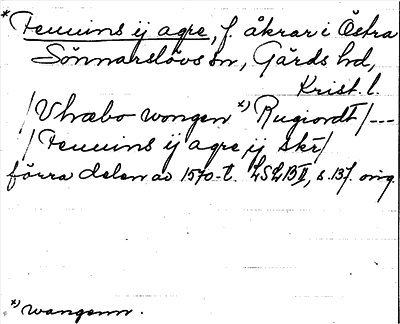 *Feuuins ij agre, f. åkrar i Östra
Sönnarslövs sn, Gärds hd,
Krist. l.
/Vhæbo wongen *) Rugiordt/---
/Feuuins ij agre ij skr/
förra delen av 1570-t. LSLB II, s. 137. orig.
*) wangenn.